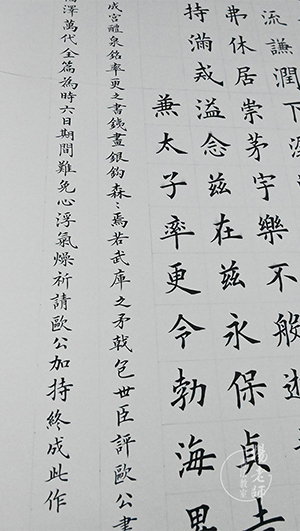 流謙潤下
弗休居崇茅宇樂不般遊
持滿戒溢念茲在茲永保貞吉
兼太子率更令勃海男
成宮醴泉銘率更之書銕畫銀鉤森〻焉若武庫之矛戟包世臣評歐公書
澤萬代全篇為時六日期間難免心浮氣燥祈請歐公加持終成此作
老師
教室